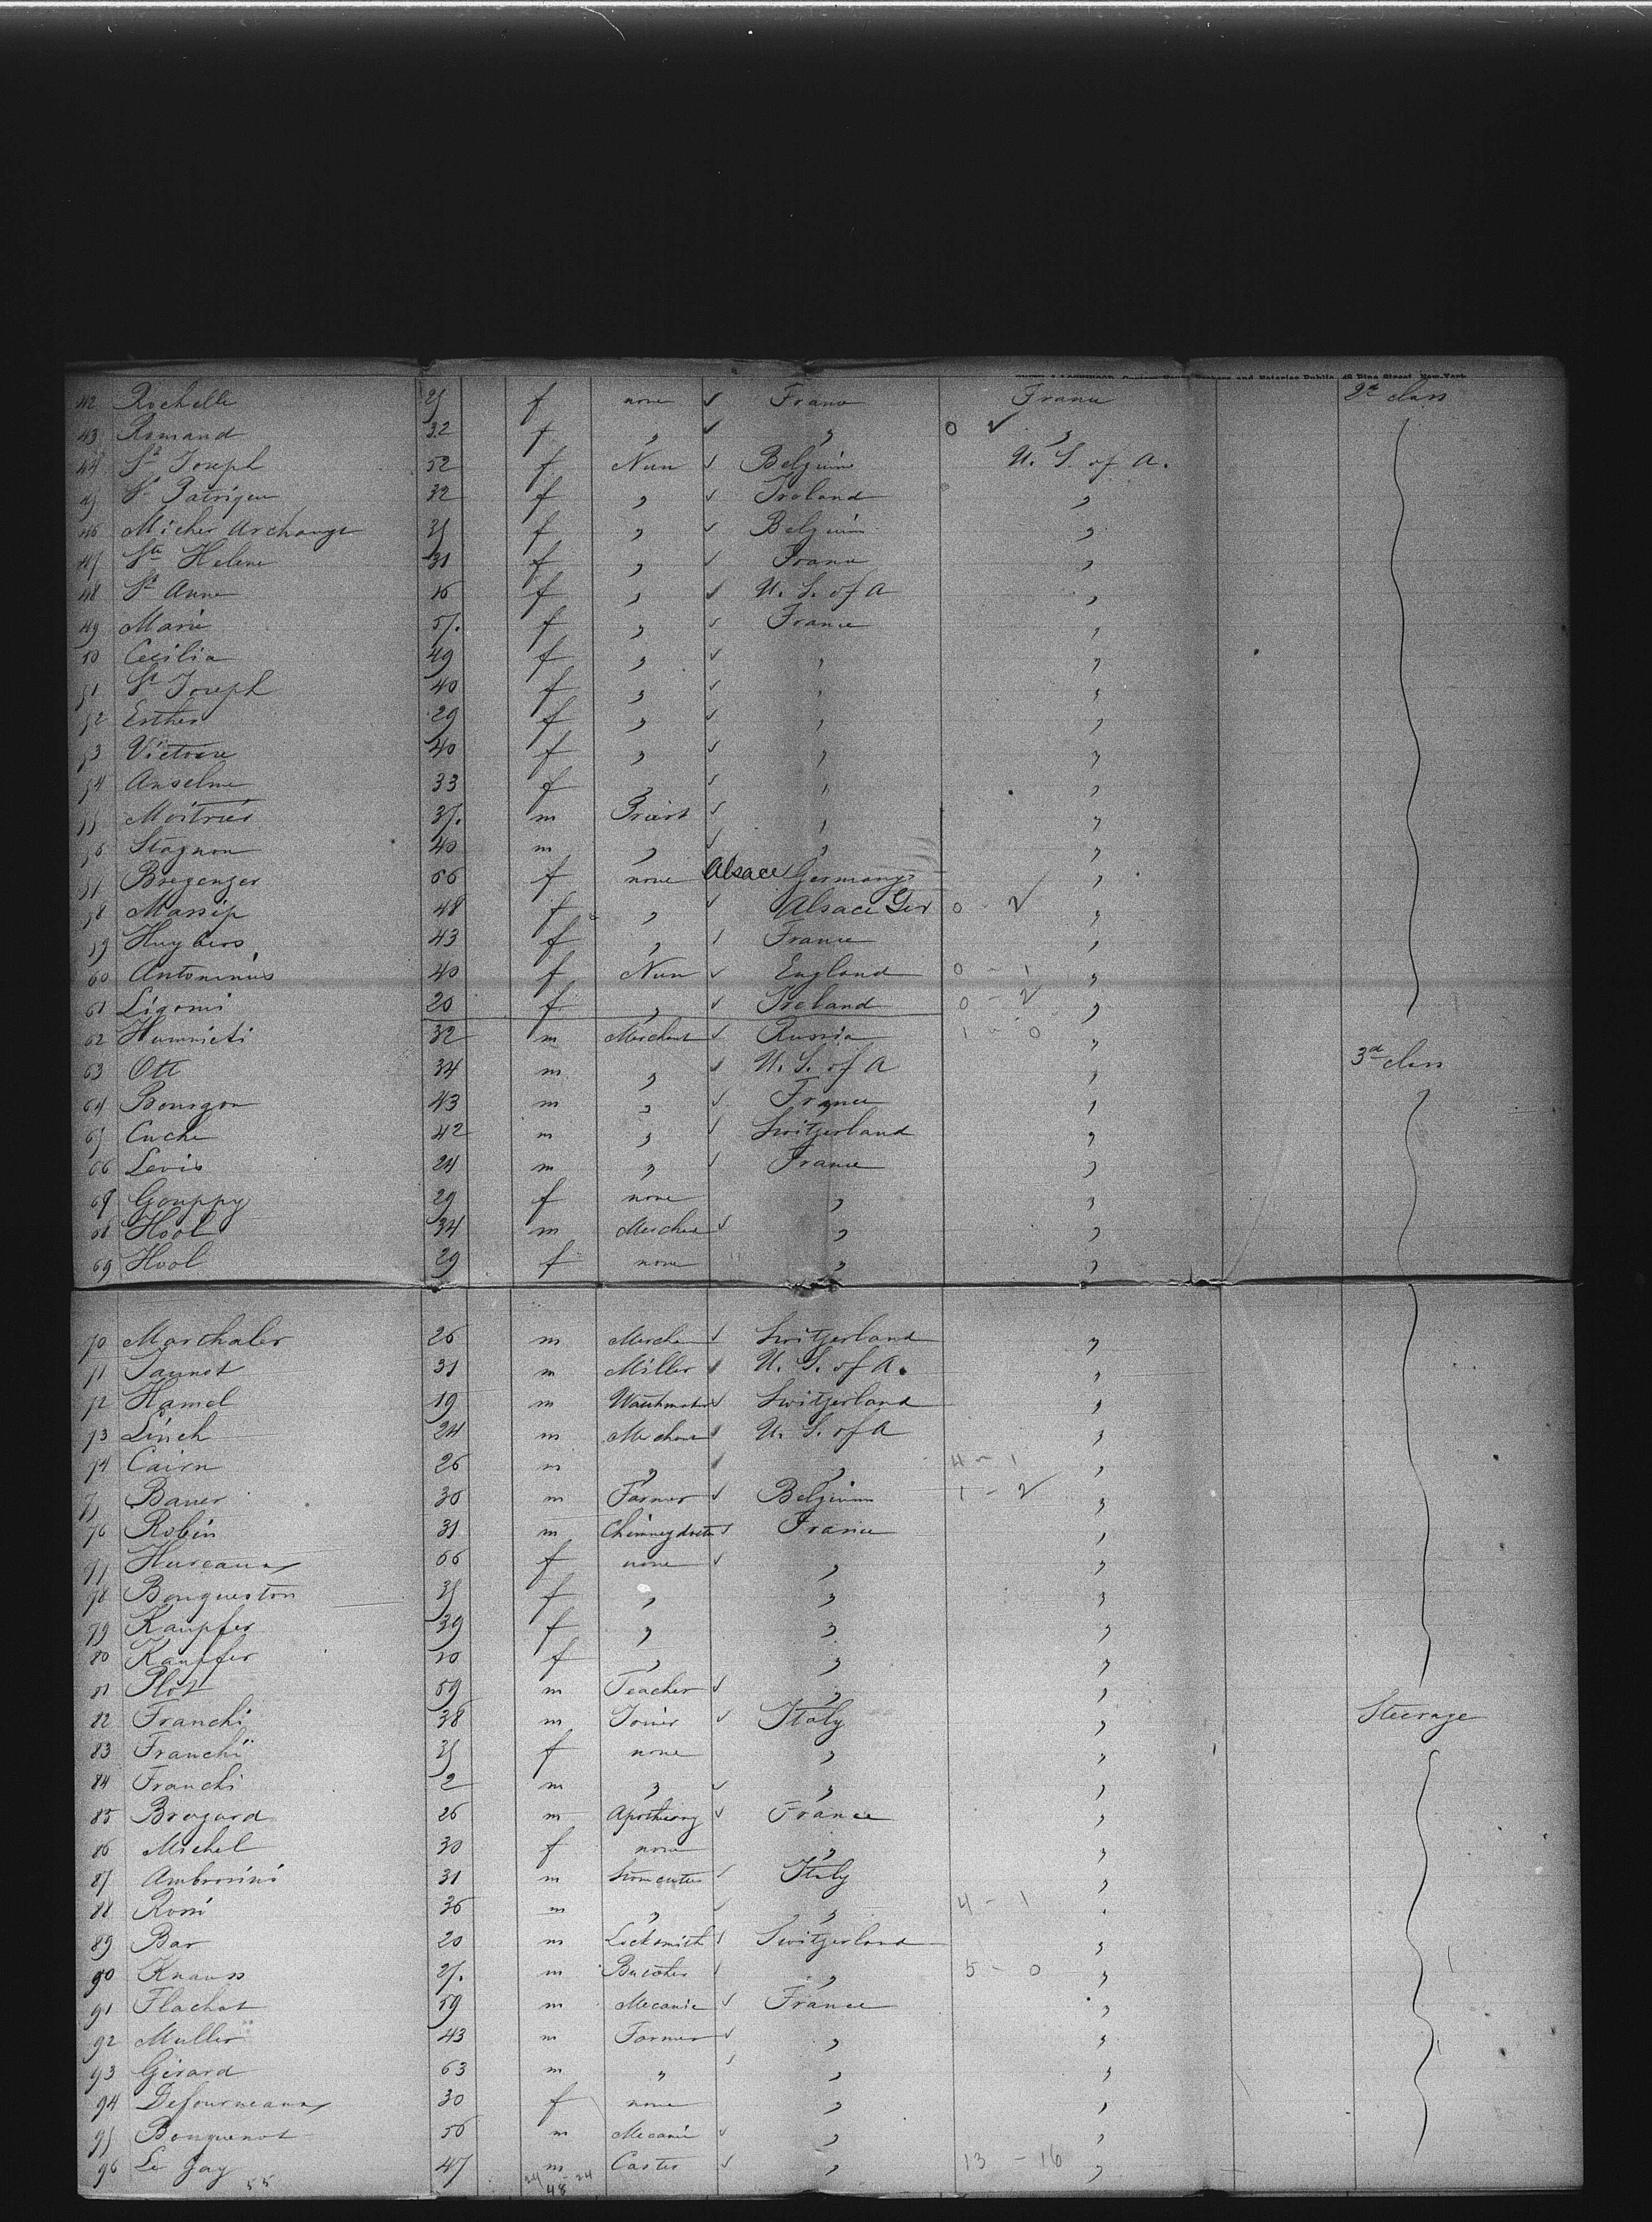 48 Pine Street, New-York
42 Rochelle f none France France 2d class
43 Romand 32 f " " 0 2 "
44 St Joseph 52 f Nun Belgium U. S. of A.
45 St Patrique 32 f " Ireland "
46 Micher Archange 35 f " Belgium "
47 Ste Helene 31 f " France "
48 St Anne 16 f " U. S. of A "
49 Marie 57. f " France "
50 Cecilia 49 f " " "
51 St Joseph 40 f " " "
52 Esther 29 f " " "
53 Victoire 40 f " " "
54 Anselme 33 f " " "
55 37. m Priest " "
56 Stagnon 40 m " " "
57 Bregenzer 66 f none Alsace Germany "
58 Massip 48 f " Alsace Ger 0 - 2 "
59 Huybers 43 f " France "
60 Antoninus 40 f Nun England 0 - 1 "
61 Ligoni 20 f " Ireland 0 - 2 "
62 32 m Merchant Russia 1 - 0 "
63 Ott 34 m " U. S. of A " 3d class
64 Bourgon 43 m " France "
65 Cuche 42 m " Switzerland "
66 Levis 24 m " France "
67 Gouppy 29 f none " "
68 Hool 34 m Merchan " "
69 Hool 29 f none " "
70 Marthaler 26 m Merchan Switzerland "
71 Jaunot 31 m Miller U. S. of A. "
72 Hamel 19 m Watchmaker Switzerland "
73 Linch 24 m Merchant U. S. of A "
74 Cairn 26 m " " 4 - 1 "
75 Bauer 30 m Farmer Belgium 1 - 2 "
76 Robin 31 m France "
77 Hureaux 66 f none " "
78 Bouqueston 35 f " " "
79 Kaupfer 39 f " " "
80 Kaupfer 10 f " " "
81 Plot 59 m Teacher " "
82 Franchi 38 m Joiner Italy " Steerage
83 Franchi 35 f none " "
84 Franchi 2 m " " "
85 Brezard 26 m Apothicary France "
86 Michel 30 f none " "
87 Ambrosini 31 m Stonecutter Italy "
88 Rossi 36 m " " 4 - 1 "
89 Bar 20 m Locksmith Switzerland "
90 Knauss 27. m Butcher " 5 - 0 "
91 Flachat 59 m Mecanic France "
92 Muller 43 m Farmer " "
93 Gerard 63 m " " "
94 Defourneaux 30 f none " "
95 Bouquenot 56 m Mecanic " "
96 Le Gay 47 m Caster " 13 - 16 "
55 24 - 24
48